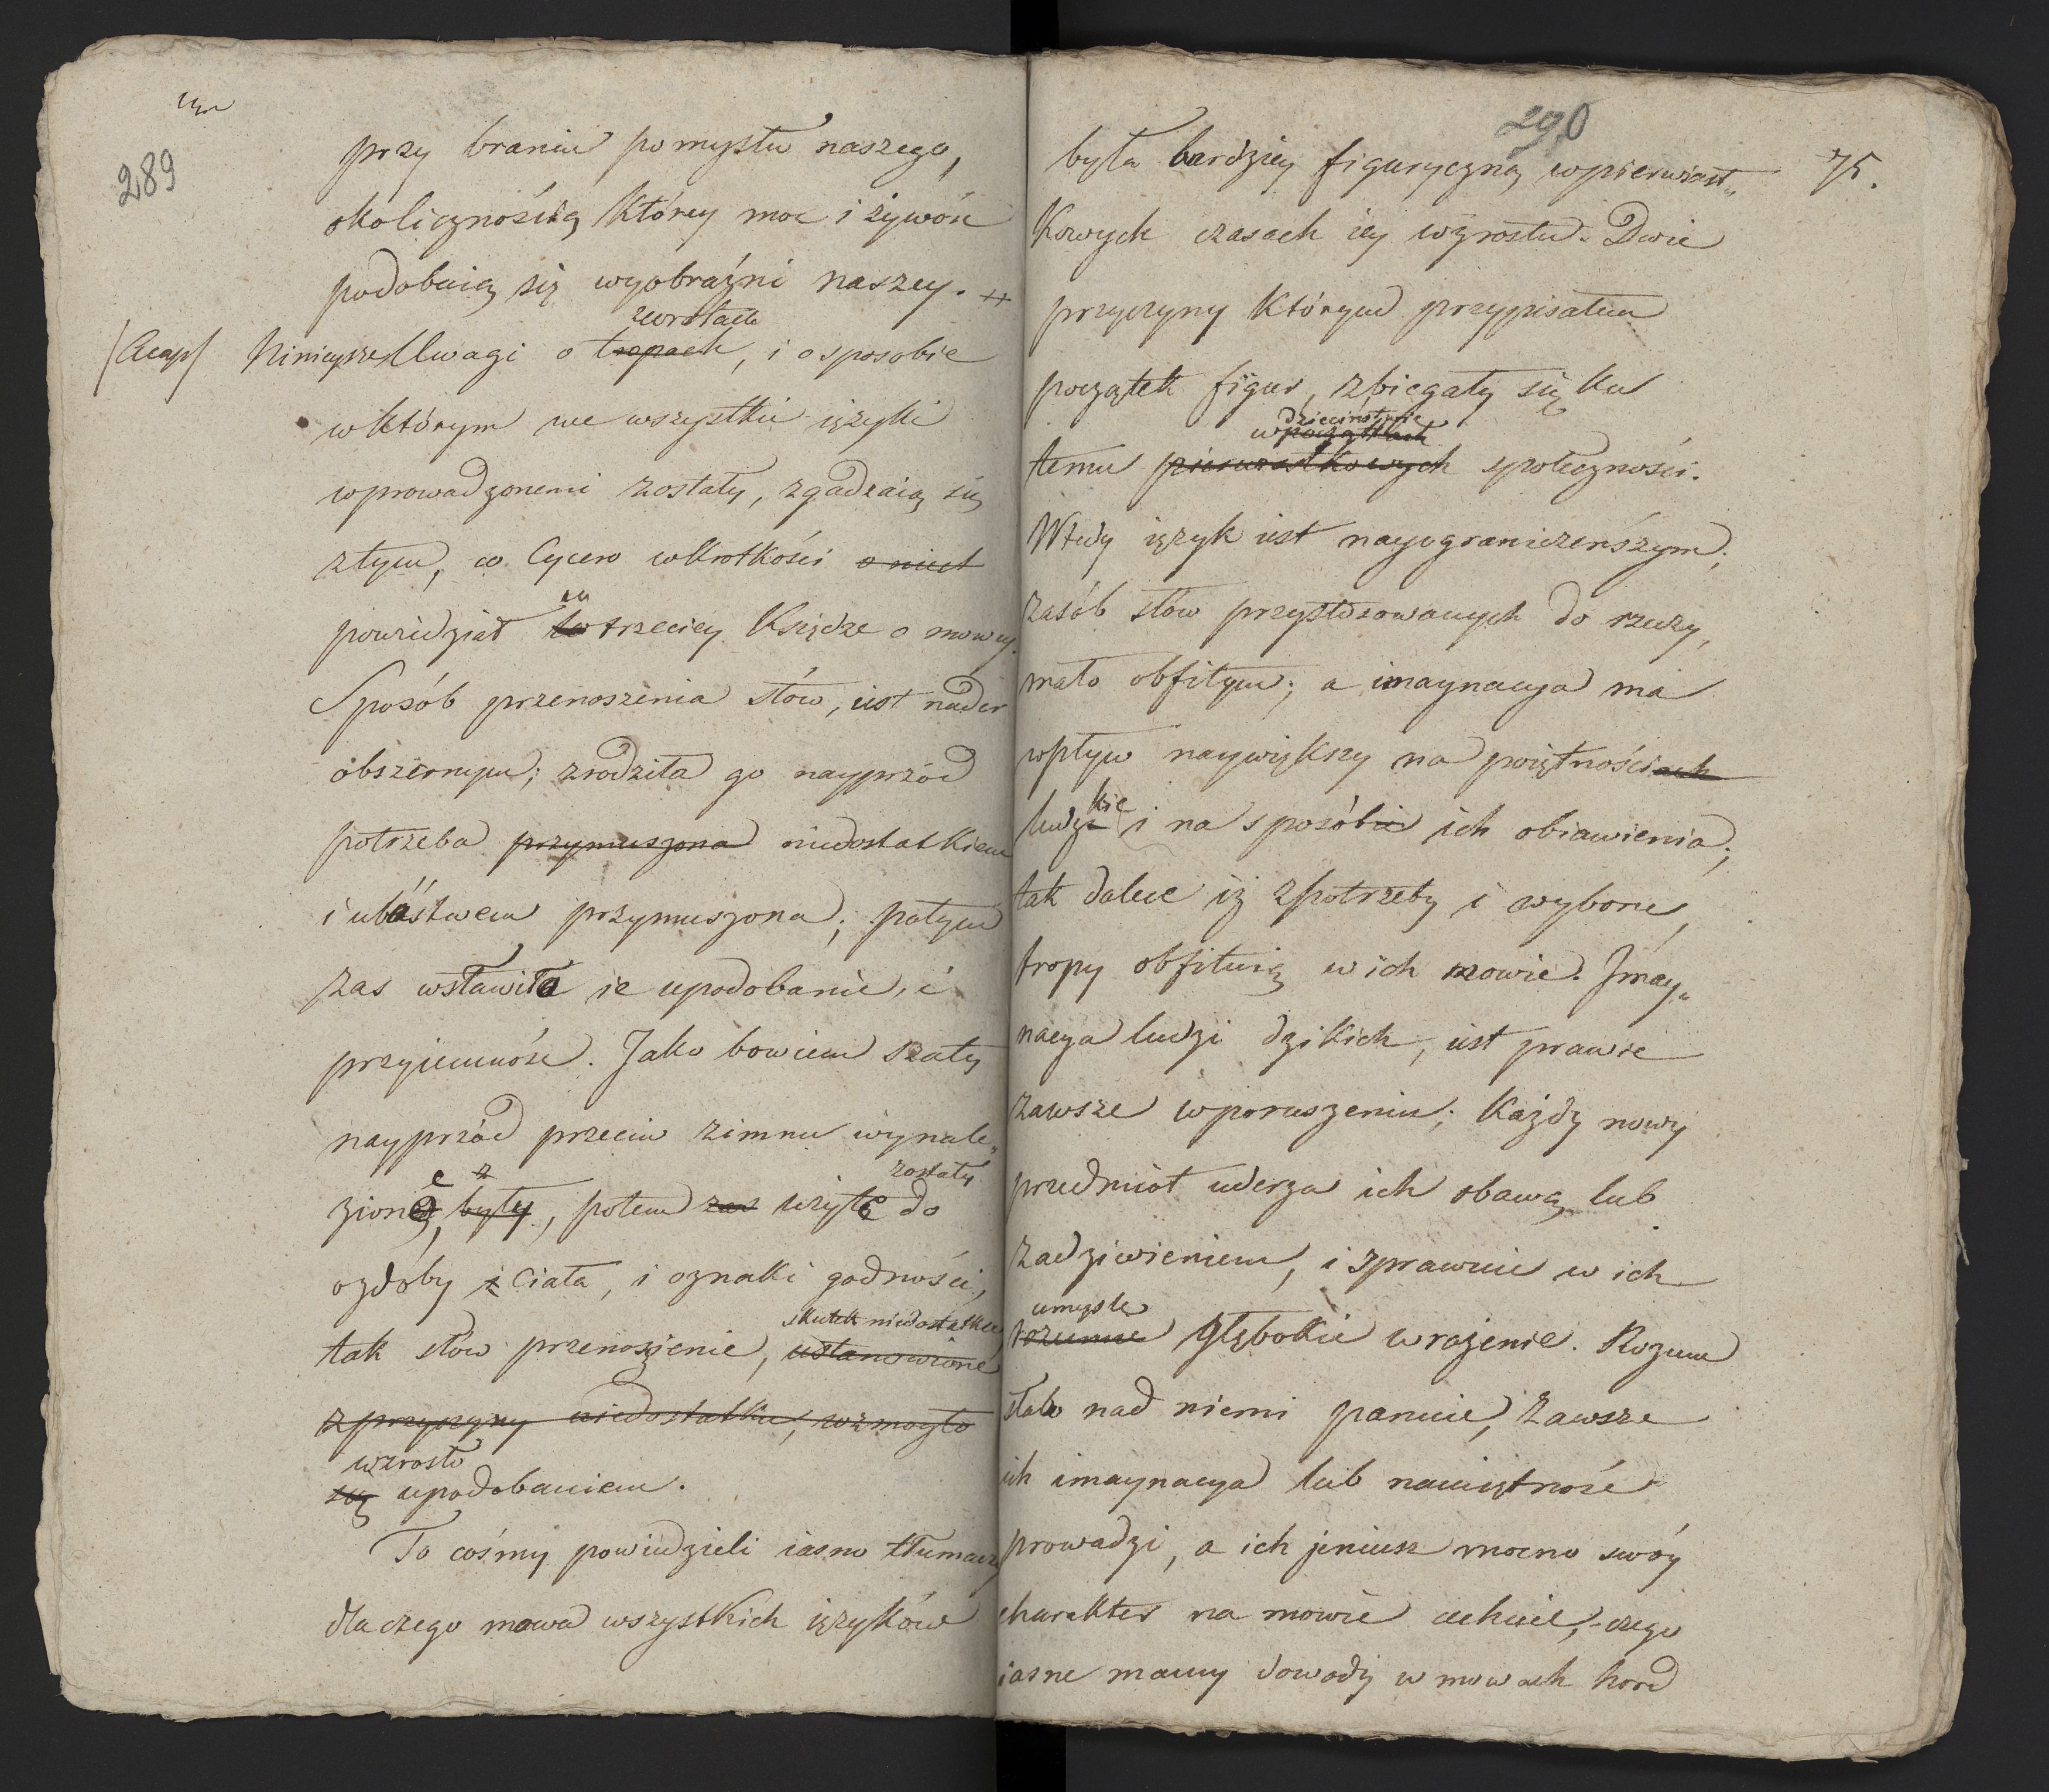 289
przy braniu pomysłu naszego,
okolicznością, którey moc i żywość
podobaią się wyobraźni naszey. ++
zwrotach
/Acap/ Ninieysze Uwagi o tropach, i o sposobie
w którym we wszystkie ięzyki
wprowadzonemi zostały, zgadzaią się
z tym, co Cycero w krotkości o nich
powiedział w trzeciey Księdze o mowcy.
Sposób przenoszenia słów, iest nader
obszernym; zrodziła go nayprzód
potrzeba przymuszona niedostatkiem
i ubóstwem przymuszona; potym
zas wsławiło ie upodobanie, i
przyiemność. Jako bowiem szaty
nayprzód przeciw zimnu wynale„
e z zostały
zione, były, potem zas użyte do
ozdoby i Ciała, i oznaki godności,
skutek niedostatku
tak słów przenoszenie, ustanowione
z przyczyny niedostatku, wzmogło
wzrosło
się upodobaniem.
To cośmy powiedzieli iasno tłumaczy
dlaczego mowa wszystkich ięzyków
290
75.
była bardziey figuryczną w pierwiast„
kowych czasach iey wzrostu. Dwie
przyczyny którym przypisałem
początek figur, zbiegały się ku
dzieciństwie
w początkach
temu pierwiastkowych społeczności.
Wtedy ięzyk iest nayograniczeńszym;
zasób słów przystosowanych do rzeczy,
mało obfitym; a imaynacya ma
wpływ naywiększy na poiętnościach
kie
ludzi i na sposóbie ich obiawienia;
tak dalece iż z potrzeby i wyboru,
tropy obfituią w ich mowie. Jmay„
nacya ludzi dzikich, iest prawie
zawsze w poruszeniu; każdy nowy
przedmiot uderza ich obawą lub
zadziwieniem, i sprawuie w ich
umyśle
rozumie głębokie wrażenie. Rozum
słabo nad niemi panuie, zawsze
ich imaynacya lub namiętność
prowadzi, a ich jeniusz mocno swóy
charakter na mowie cechuie, czego
iasne mamy dowody w mowach hord